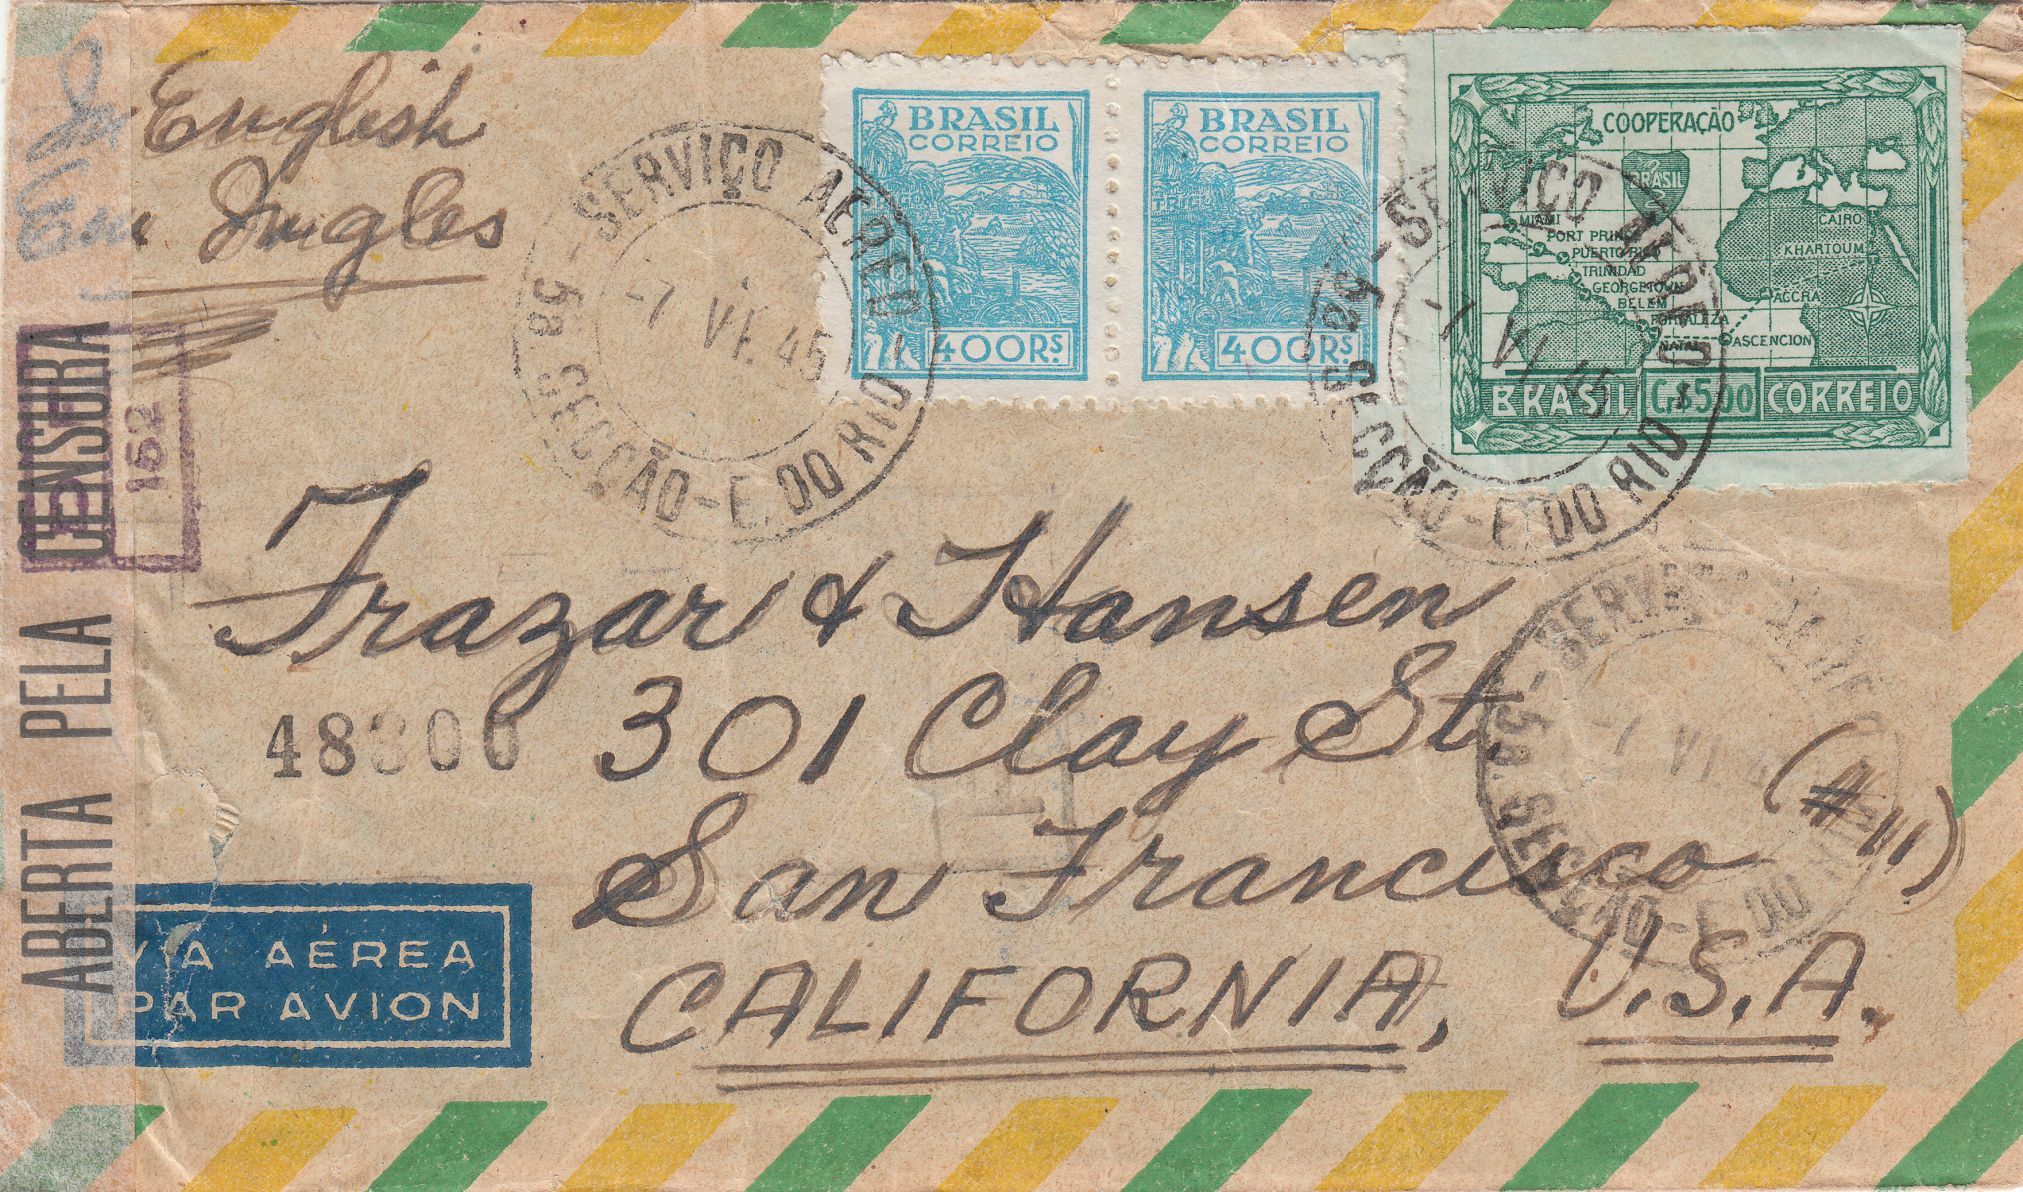 In English
Em Ingles
ABERTA PELA CENSURA
152
SERVIÇO AEREO
5a SECÇÃO-E. DO RIO
-7 VI. 45
BRASIL
CORREIO
400RS
BRASIL
CORREIO
400RS
COOPERAÇÃO
BRASIL
MIAMI
PORT PRINCE
PUERTO RICO
TRINIDAD
GEORGETOWN
BELEM
FORTALEZA
NATAL
ASCENCION
ACCRA
KHARTOUM
CAIRO
BRASIL Cr$5,00 CORREIO
SERVIÇO AEREO
5a SECÇÃO-E. DO RIO
-7 VI. 45
Frazar & Hansen
301 Clay St.
San Francisco (#11)
CALIFORNIA, U.S.A.
48300
SERVIÇO AEREO
5a. SECÇÃO-E. DO RIO
-7 VI
VIA AÉREA
PAR AVION